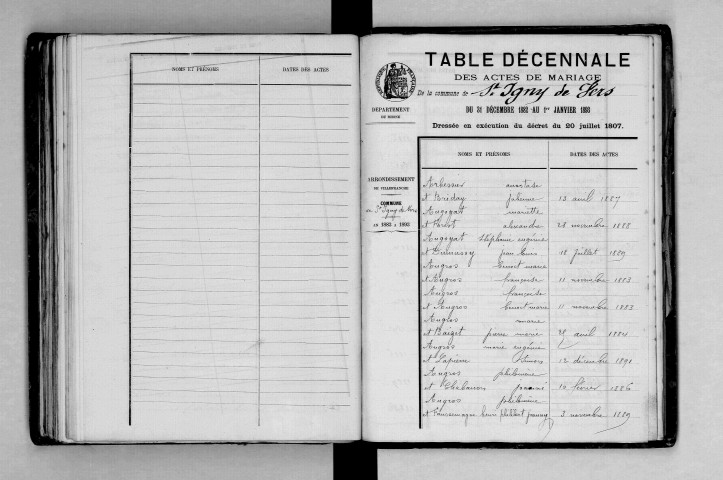 NOMS ET PRÉNOMS DATES DES ACTES
TABLE DÉCENNALE
DES ACTES DE MARIAGE
De la commune de St. Igny de Vers
DU 31 DÉCEMBRE 1882 AU 1er JANVIER 1893
Dressée en exécution du décret du 20 juillet 1807.
DÉPARTEMENT
DU RHONE
ARRONDISSEMENT
DE VILLEFRANCHE
COMMUNE
de St Igny de Vers
DE 1883 A 1893
NOMS ET PRÉNOMS DATES DES ACTES
anastasie
et 13 avril 1887
Augoyat mariette
et alexandre 28 novembre 1888
Augoyat Stéphanie eugénie
et 18 Juillet 1889
Augros benoit marie
et Augros françoise 11 novembre 1883
Augros françoise
et Augros benoit marie 11 novembre 1883
marie
et pierre marie 28 avril 1884
Augros marie eugénie
et Lapierre 12 décembre 1891
Augros philomène
et 10 février 1886
Augros philomène
et philibert 3 novembre 1889